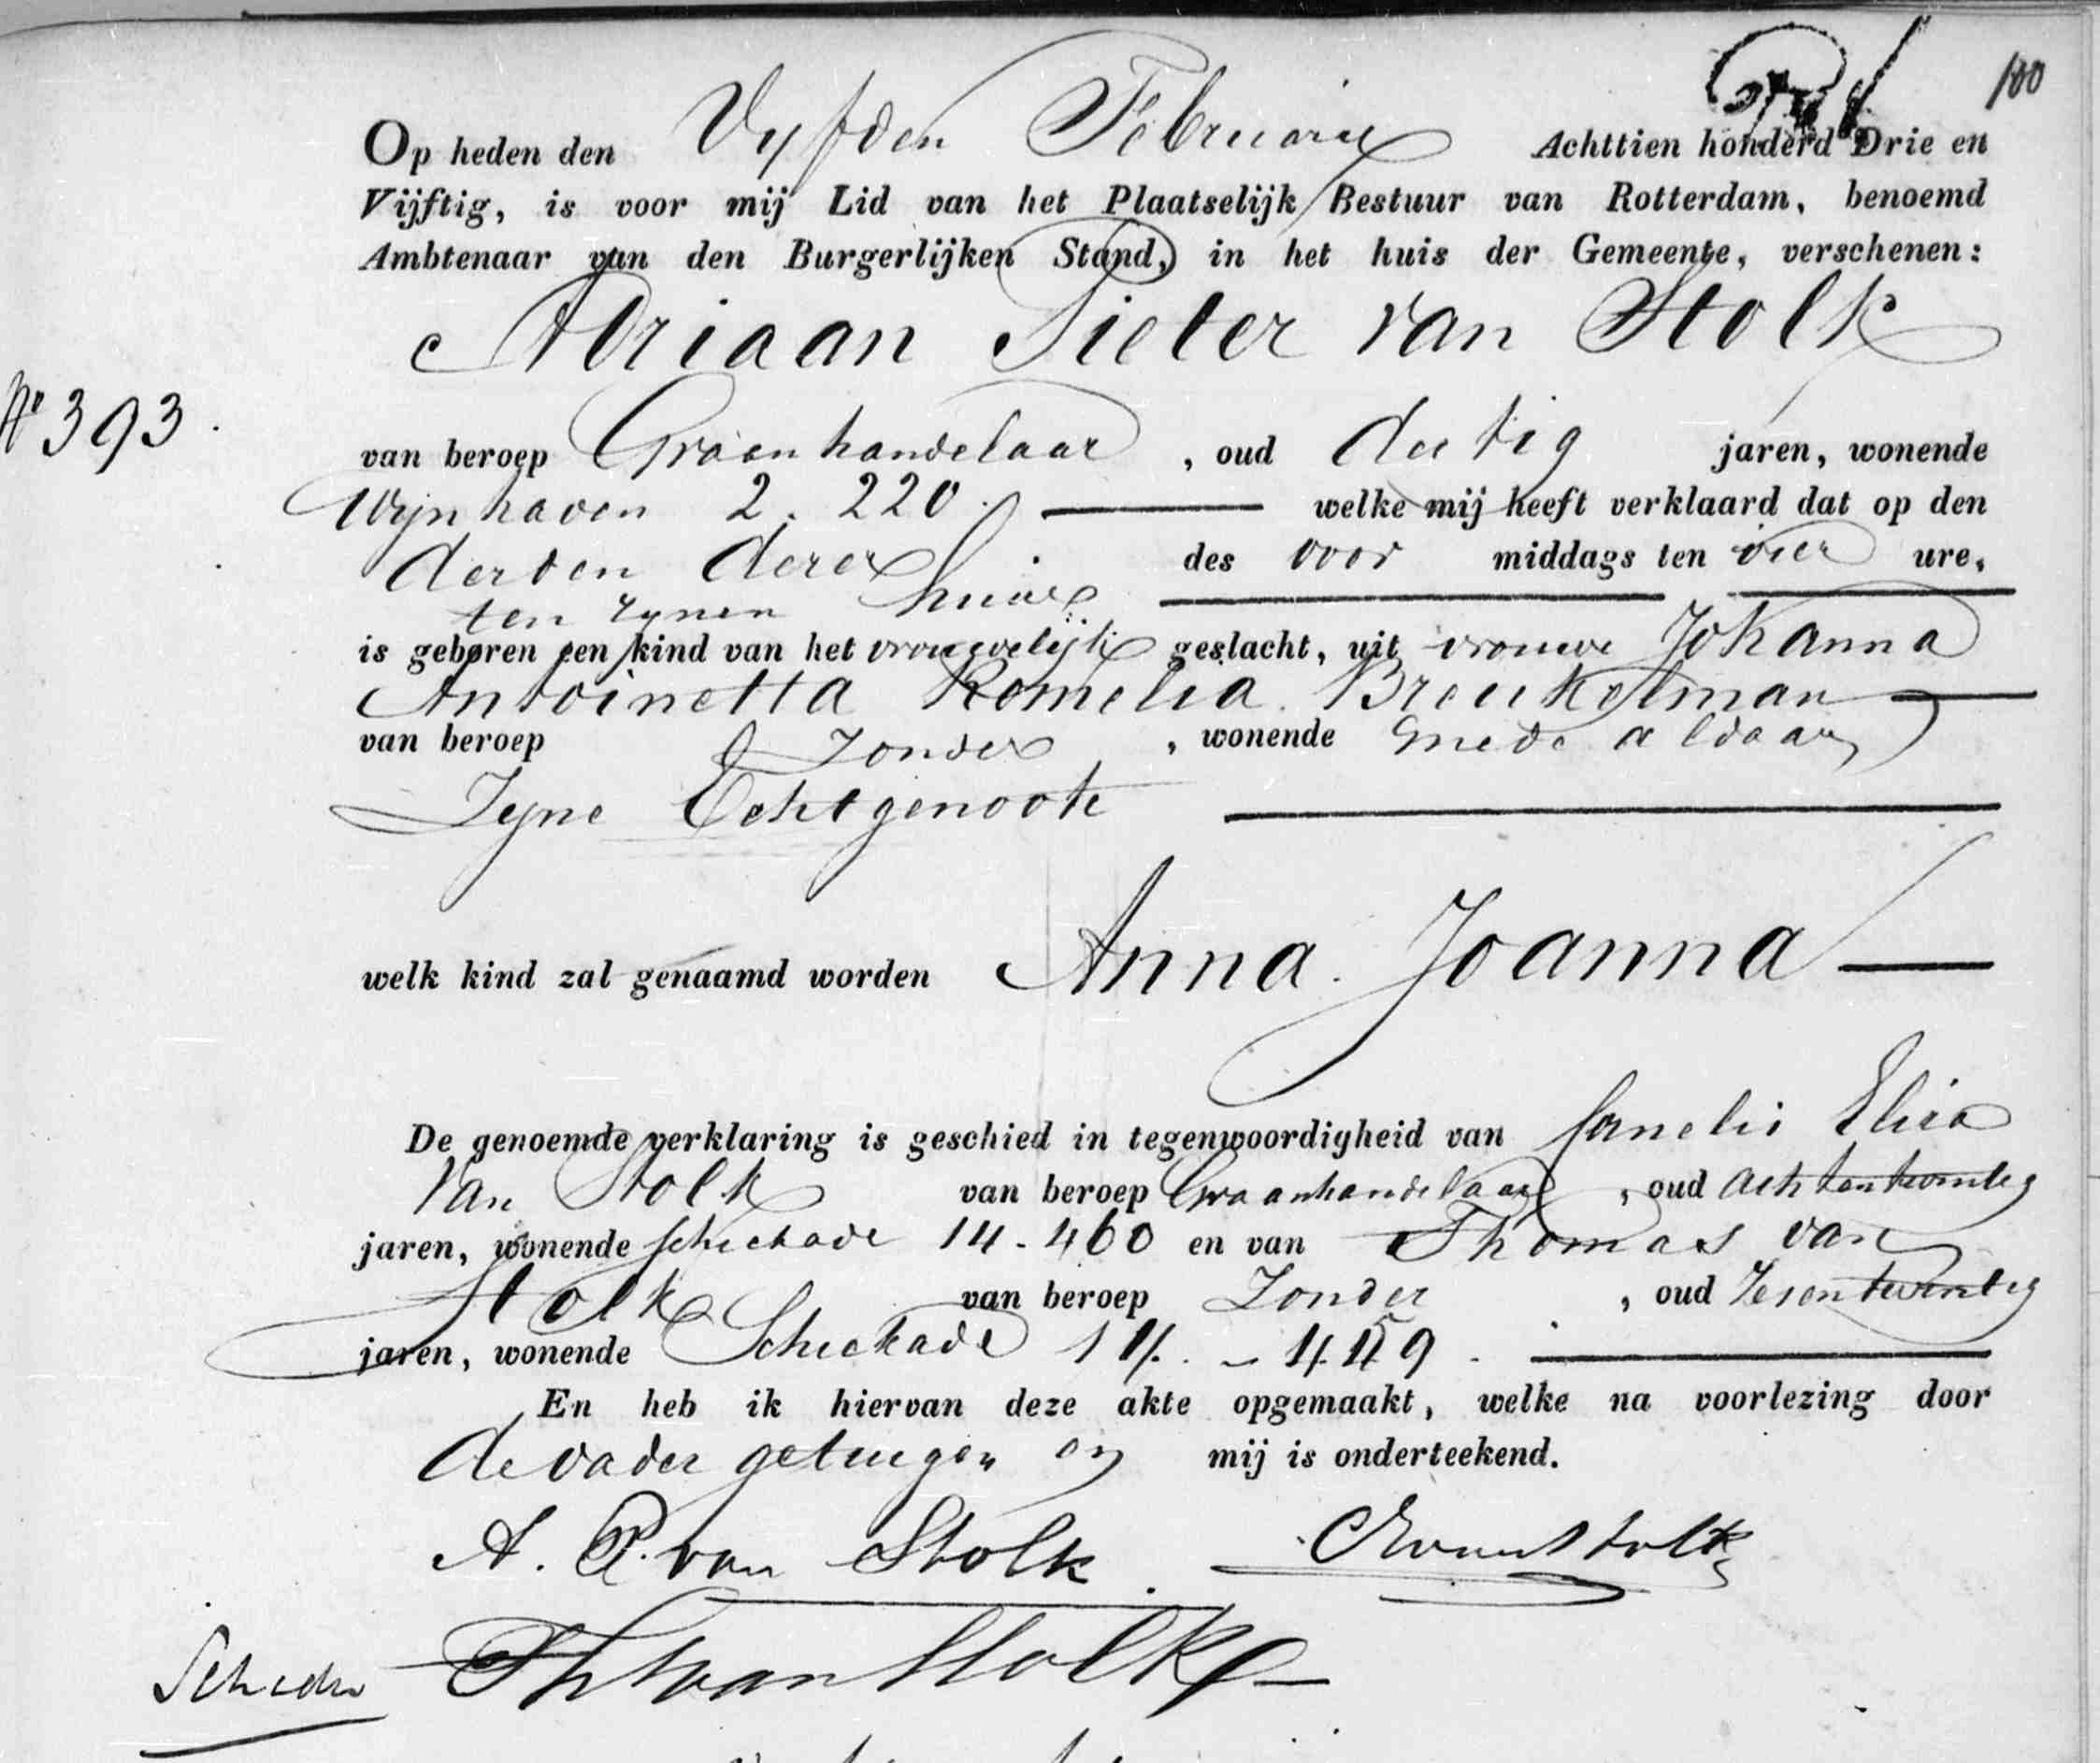 100
Op heden den Vyfden Februarij Achttien honderd Drie en
Vijftig, is voor mij Lid van het Plaatselijk Bestuur van Rotterdam, benoemd
Ambtenaar van den Burgerlijken Stand, in het huis der Gemeente, verschenen:
Adriaan Pieter van Stolk
No 393.
van beroep Graanhandelaar, oud dertig jaren, wonende
Wijnhaven 2. 220. welke mij heeft verklaard dat op den
derden dezer des voor middags ten vier ure,
ten zynen huize
is geboren een kind van het vrouwelijk geslacht, uit vrouwe Johanna
Antoinetta Romelia Breukelman
van beroep Zonder, wonende mede aldaar
Zyne Echtgenoote
welk kind zal genaamd worden Anna Joanna
De genoemde verklaring is geschied in tegenwoordigheid van Cornelis Eliza
van Stolk van beroep Graanhandelaar, oud achtentwintig
jaren, wonende Schiekade 14. 460 en van Thomas van
Stolk van beroep Zonder, oud Zesentwintig
jaren, wonende Schiekade 14. - 459.
En heb ik hiervan deze akte opgemaakt, welke na voorlezing door
de vader getuigen en mij is onderteekend.
A. P. van Stolk.
Th van Stolk